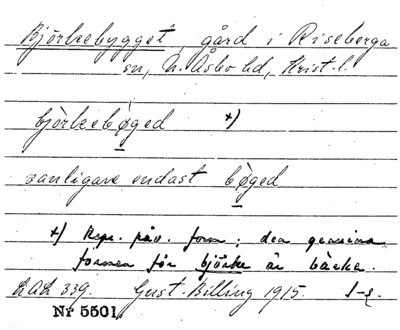 Björkebygget, gård i Riseberga
sn, N. Åsbo hd, Krist. l.
bjòrkebøged +)
vanligare endast bøged
+) Rspr. påv. form; den genuina
formen för björke är bàrke.
LAL 339. Gust. Billing 1915.
Nr 5501